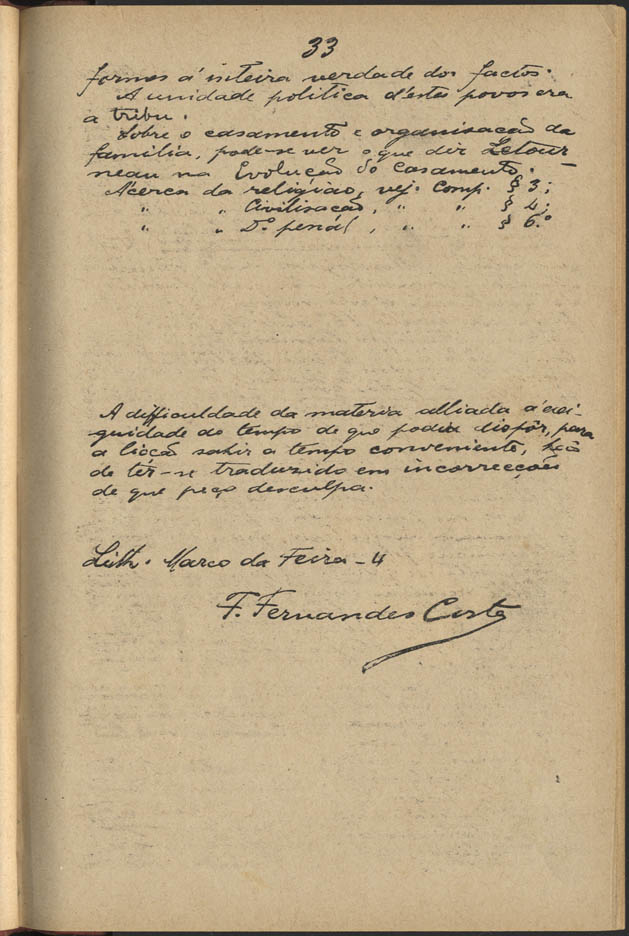 33
formes á inteira verdade dos factos.
A unidade politica d'estes povos era
a tribu.
Sobre o casamento e organisação da
familia, pode-se ver o que diz Letour-
neau na Evolução do Casamento.
Ácerca da religião, vej. Comp. § 3;
" " Civilisação, " " § 4;
" " Dº. penal, " " § 6.º
A difficuldade da materia alliada á exi-
guidade do tempo de que podia dispôr, para
a lição sahir a tempo conveniente, hão
de têr-se traduzido em incorrecções
de que peço desculpa.
Lith. Marco da Feira - 4
F. Fernandes Costa